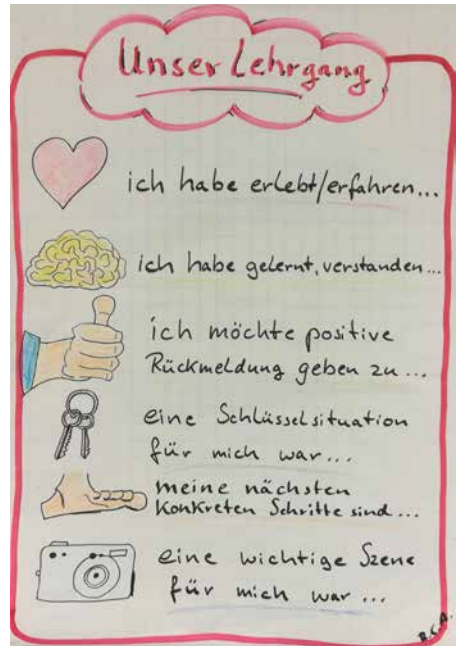 Unser Lehrgang
ich habe erlebt/erfahren...
ich habe gelernt, verstanden...
ich möchte positive
Rückmeldung geben zu...
eine Schlüsselsituation
für mich war...
meine nächsten
konkreten Schritte sind...
eine wichtige Szene
für mich war...
B.C.A.